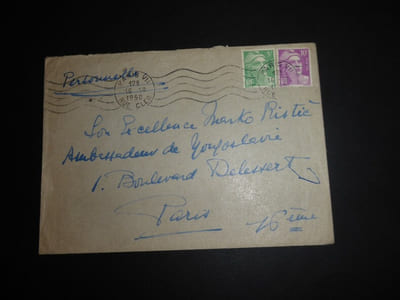 Personnelle
1950
R. CLER
10F
Son Excellence Marko Ristić
Ambassadeur de Yougoslavie
1. Boulevard Delessert
Paris
16ème